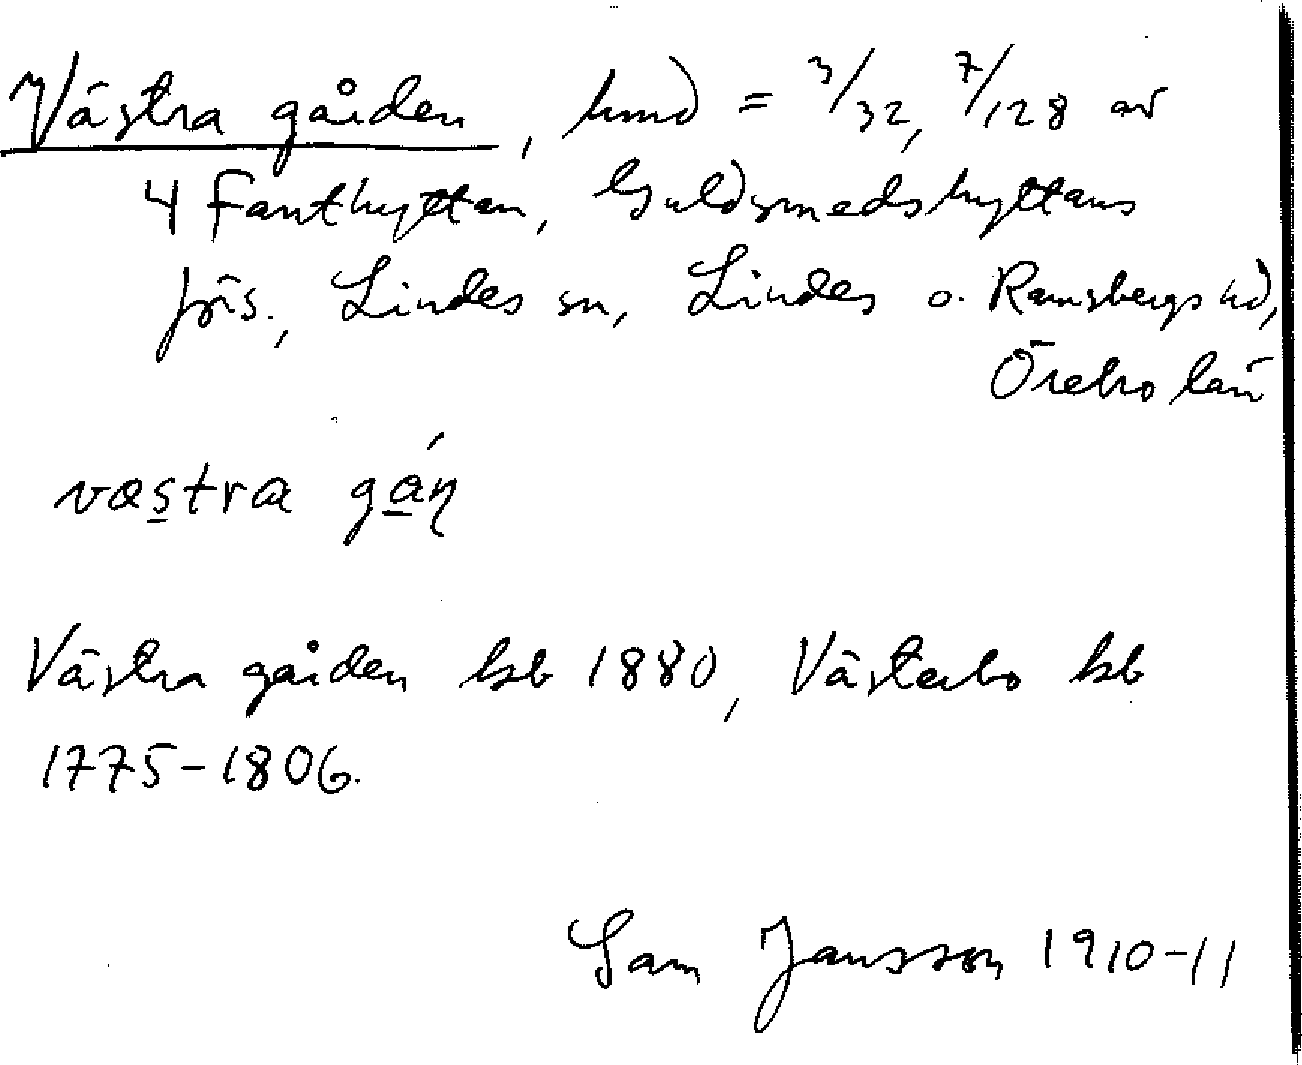 Västra gården, hmd = 3/32, 7/128 av
4 Fanthyttan, Guldsmedshyttans
jbfs., Lindes sn, Lindes o. Ramsbergs hd,
Örebro län
væstra gán
Västra gården hfb 1880, Västerbo hfb
1775-1806.
Sam Jansson 1910-11